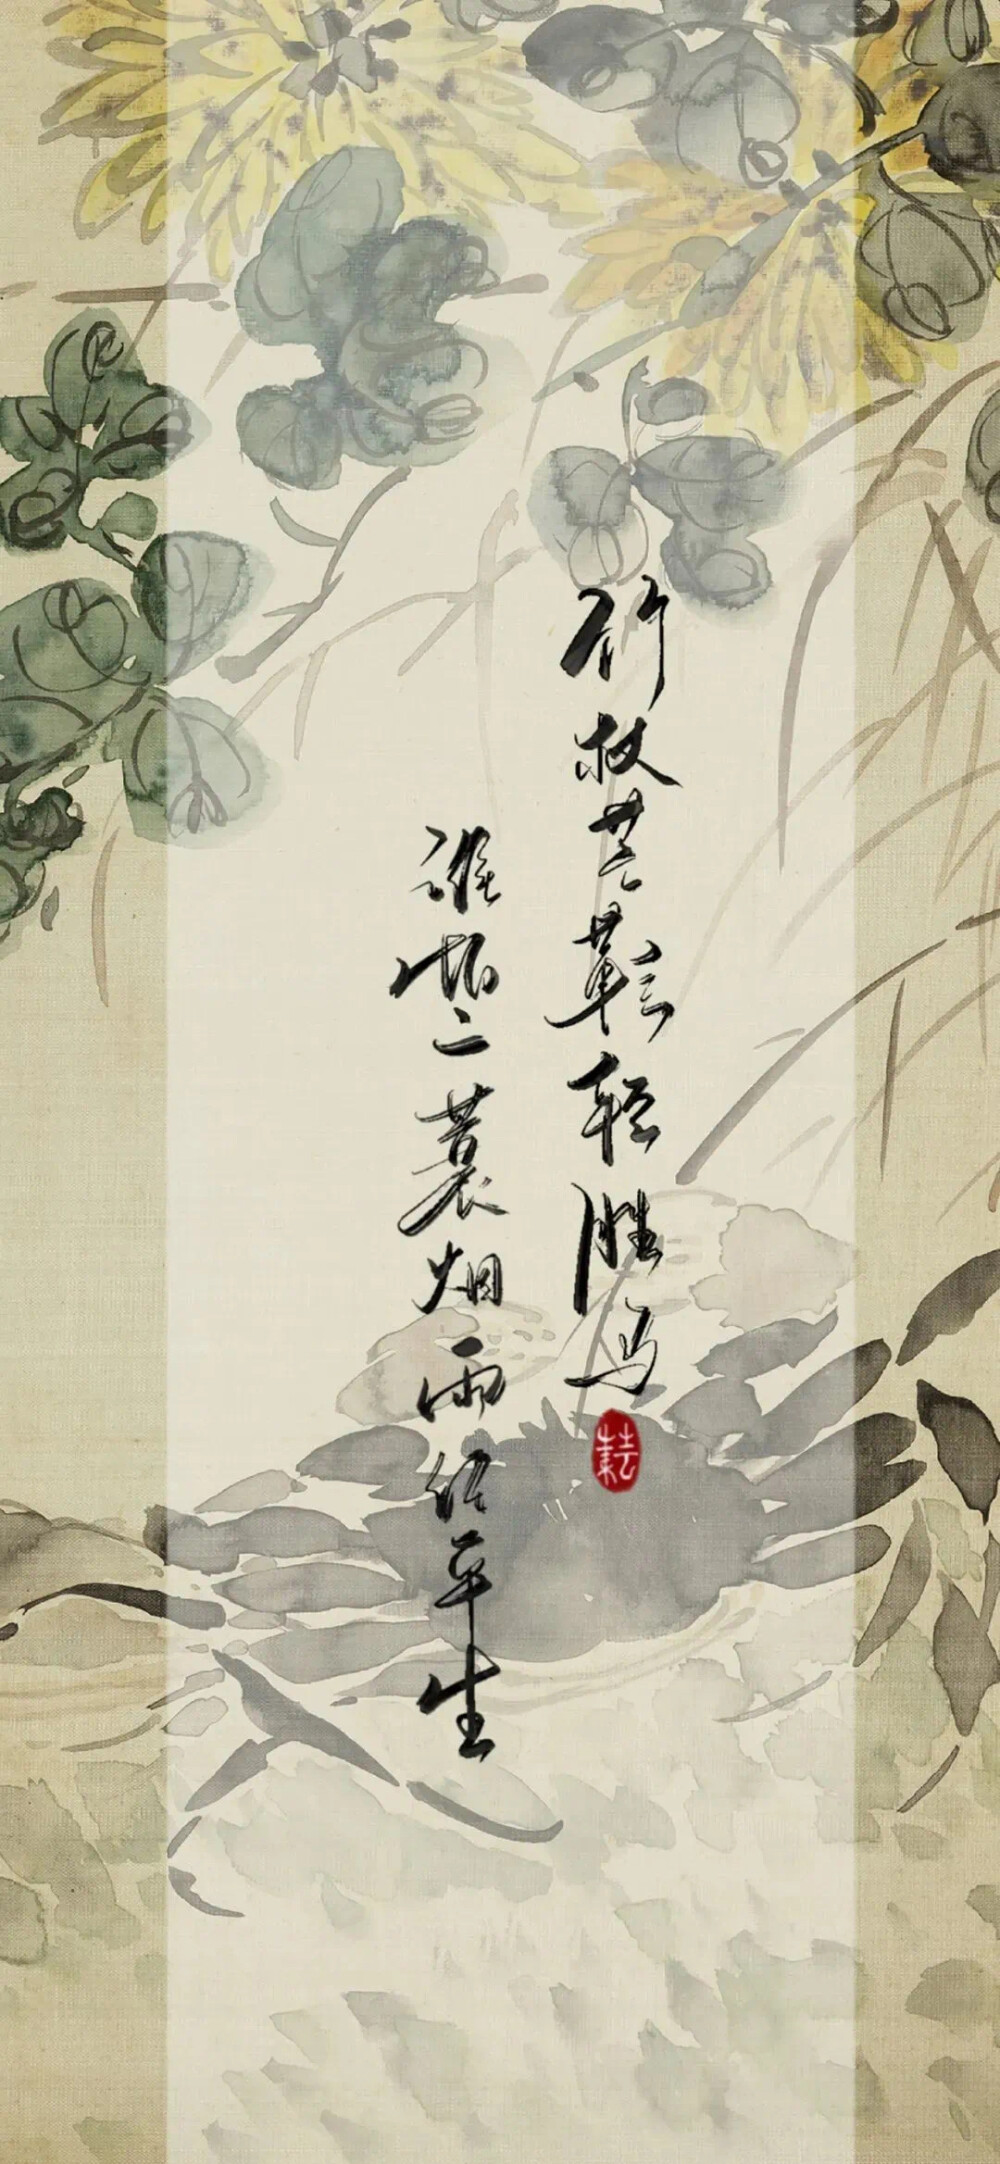 竹杖芒鞋轻胜马
谁怕一蓑烟雨任平生